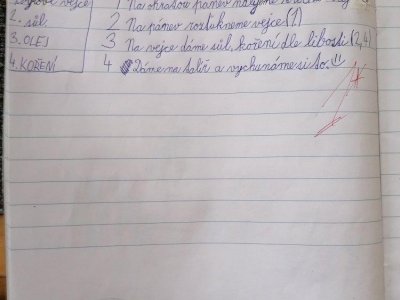 vejce 1 Na pánev
2. sůl 2 Na pánev rozťukneme vejce (1)
3. OLEJ 3 Na vejce dáme sůl, koření dle libosti (2,4)
4. KOŘENÍ 4 Dáme na talíř a vychutnáme si to. !!